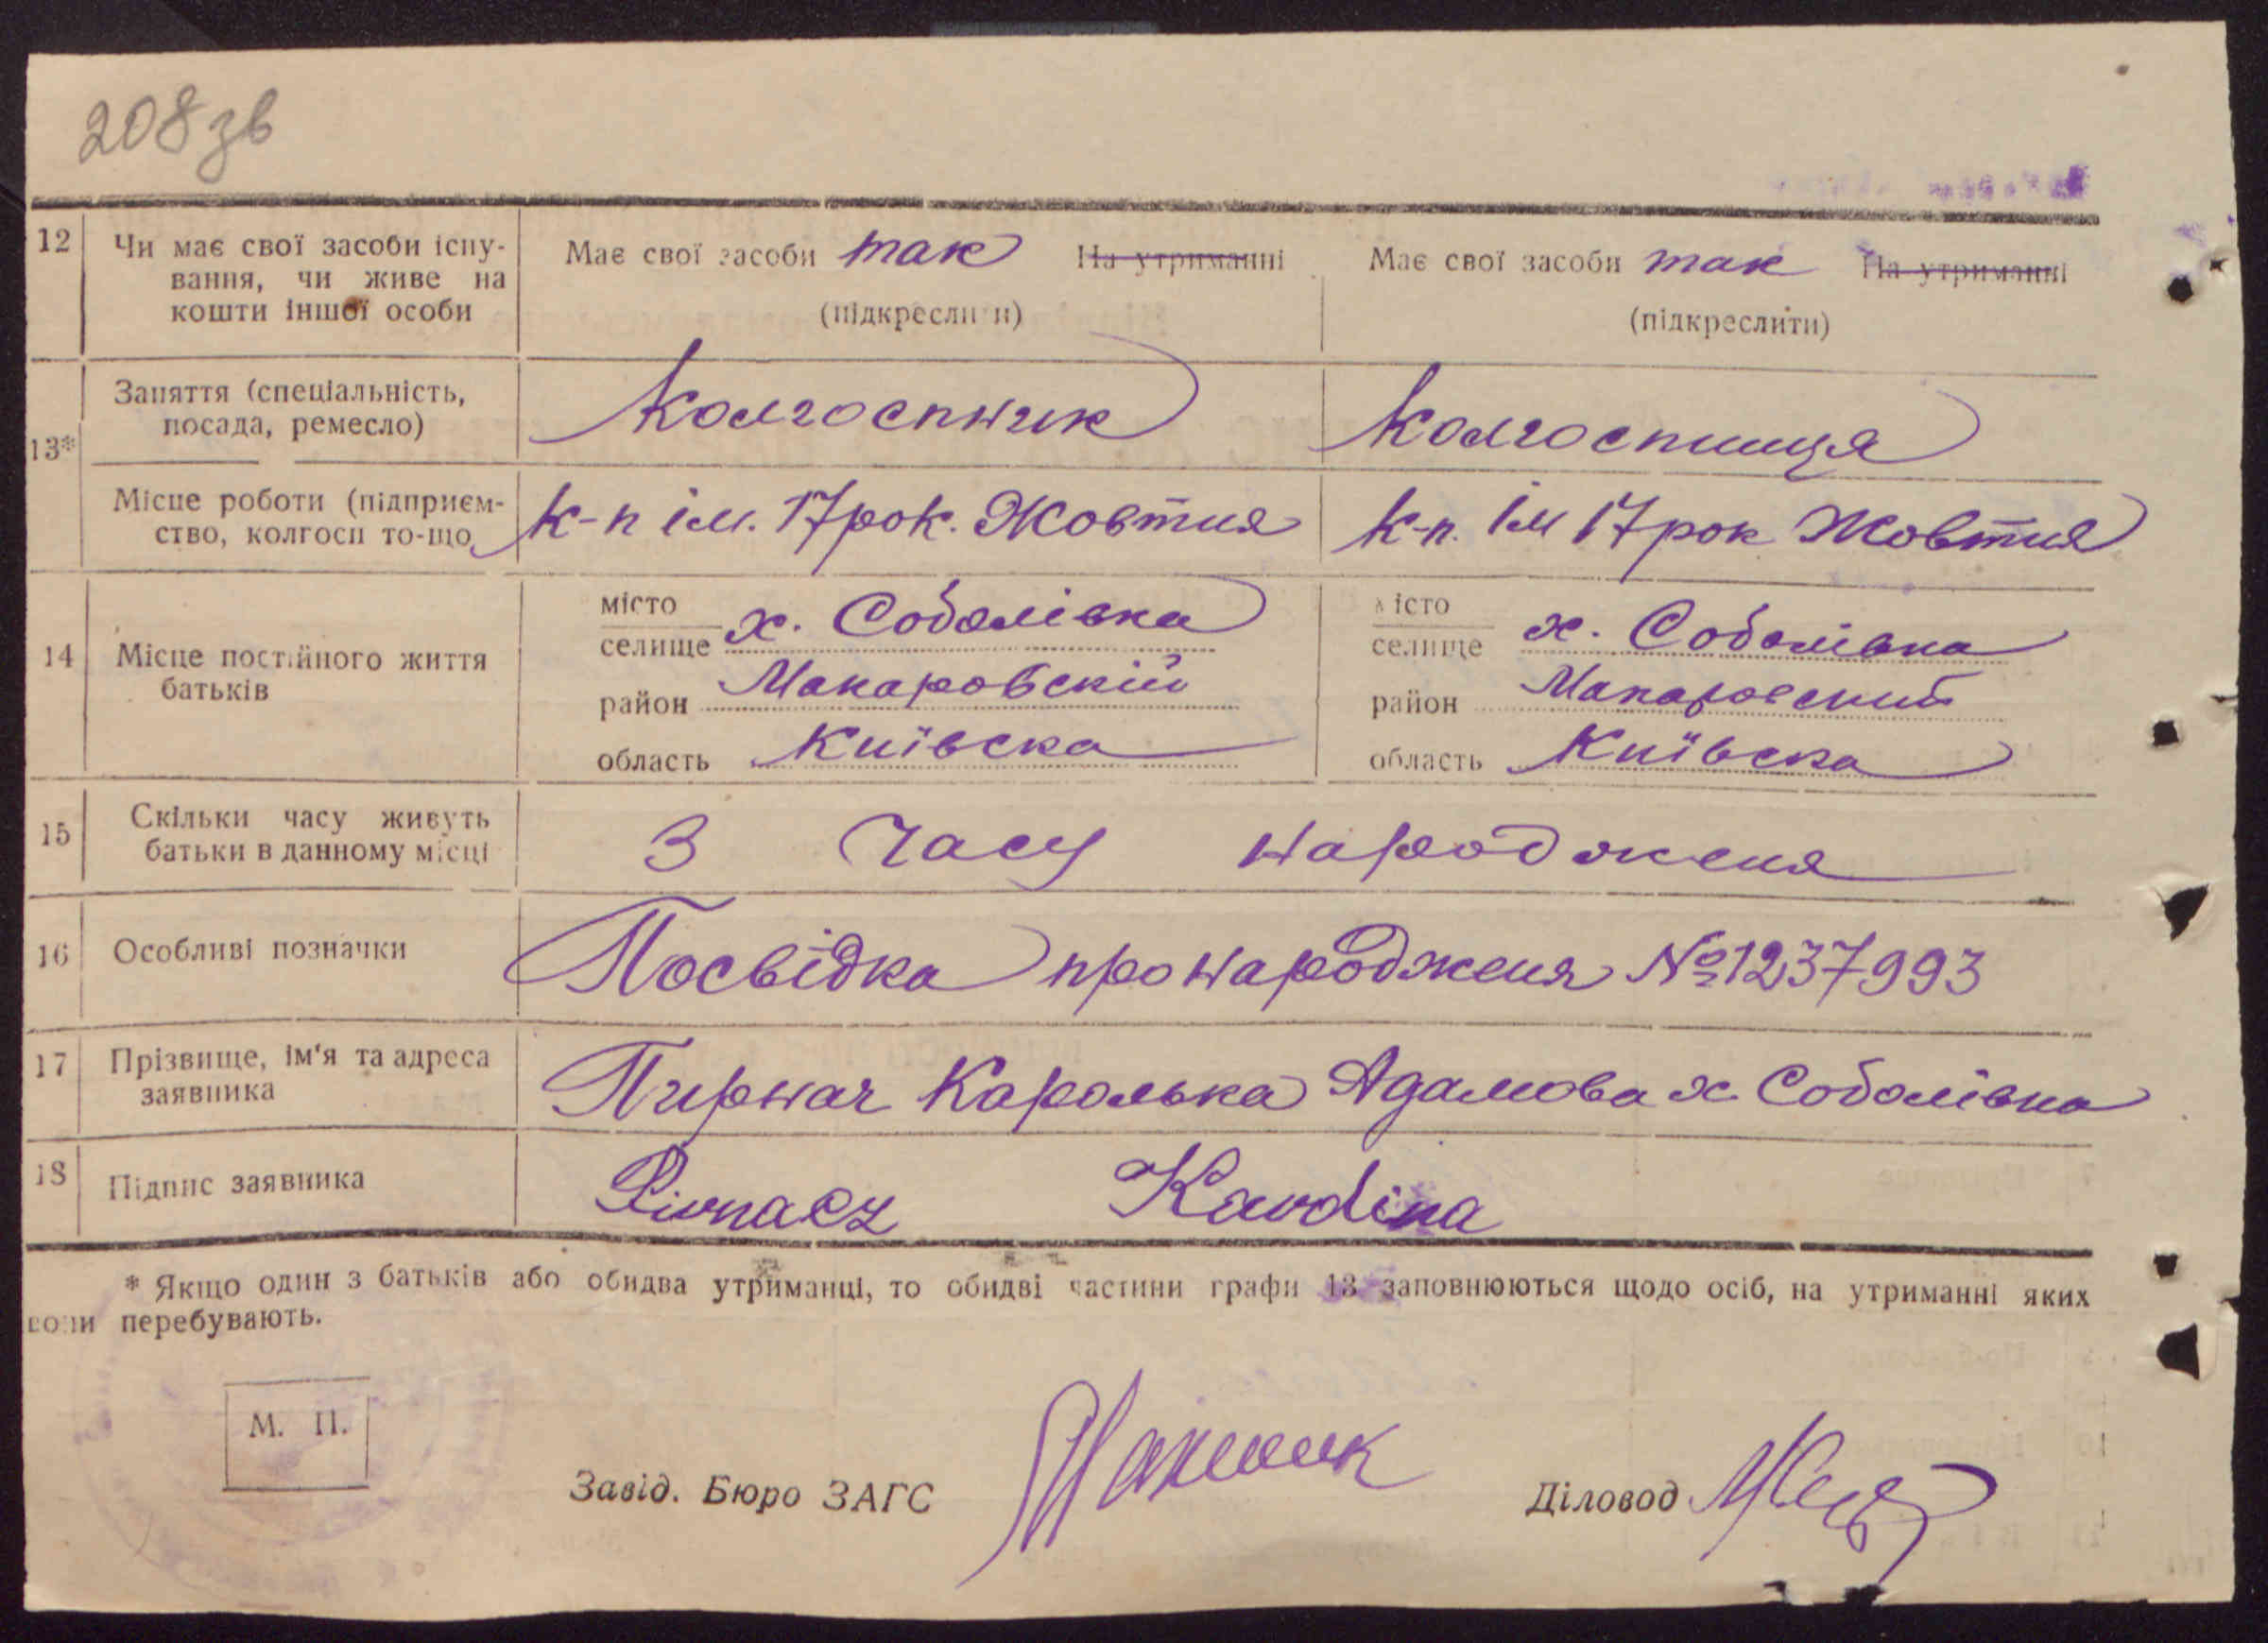 208 зв
12 Чи має свої засоби існу-
вання, чи живе на
кошти іншої особи
Має свої засоби так На утриманні
(підкреслити)
Має свої засоби так На утриманні
(підкреслити)
13*
Заняття (спеціальність,
посада, ремесло)
Колгоспник
Колгоспниця
Місце роботи (підприєм-
ство, колгосп то-що
к-п ім. 17 рок. Жовтня
к-п. ім 17 рок Жовтня
14 Місце постійного життя
батьків
місто
селище х. Соболівка
район Макаровскій
область Київска
місто
селище х. Соболівка
район Макаровский
область Київска
15 Скільки часу живуть
батьки в данному місці
З часу народженя
16 Особливі позначки
Посвідка про народженя № 1237993
17 Прізвище, ім'я та адреса
заявника
Пирнач Каролька Адамова х. Соболівка
18 Підпис заявника
Pirnacz Karolina
* Якщо один з батьків або обидва утриманці, то обидві частини графи 13 заповнюються щодо осіб, на утриманні яких
вони перебувають.
М. П.
Завід. Бюро ЗАГС
Діловод